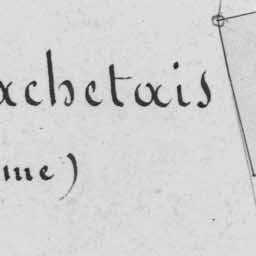 achetais
me)